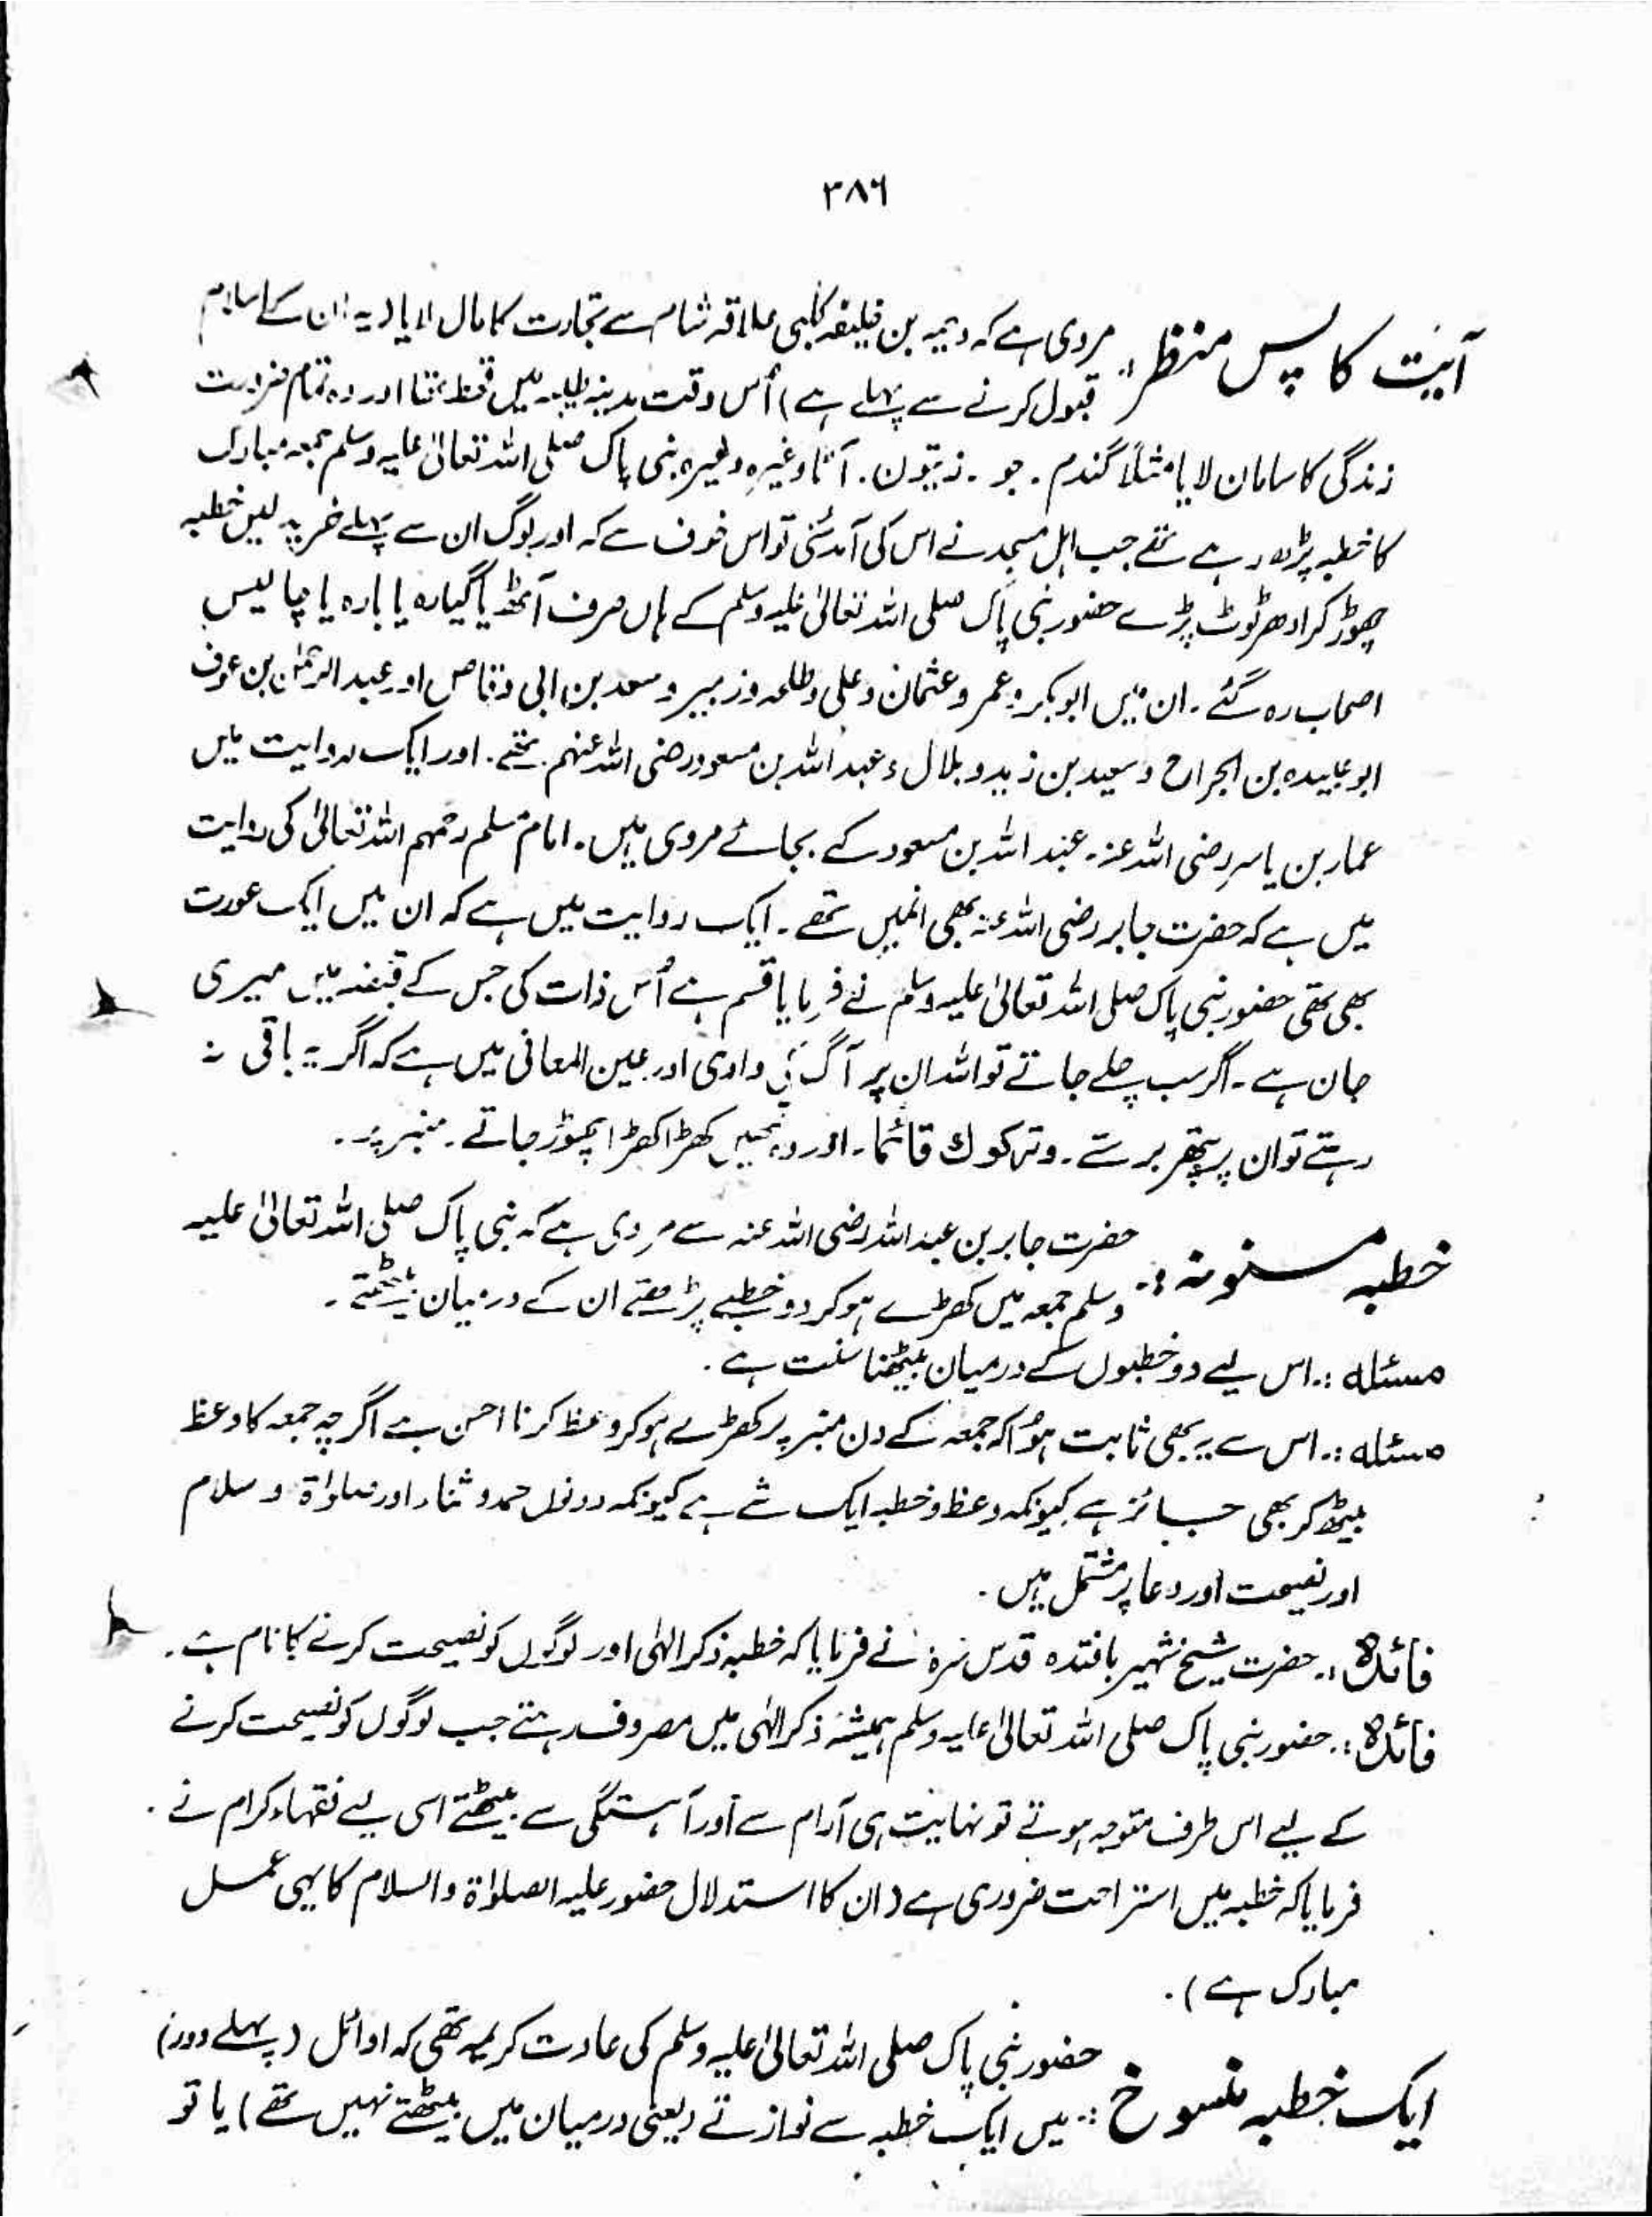 ۳۸۶
آیت کا پس منظر :. مروی ہے کہ دحیہ بن خلیفہ کلبی علاقہ شام سے تجارت کا مال لایا (یہ ان کے اسلام
قبول کرنے سے پہلے ہے) اُس وقت مدینہ طیبہ میں قحط تھا اور وہ تمام ضرورت
زندگی کا سامان لایا مثلاً گندم ۔ جو ۔ زیتون ۔ آٹا وغیرہ وغیرہ نبی پاک صلی اللہ تعالیٰ علیہ وسلم جمعہ مبارک
کا خطبہ پڑھ رہے تھے جب اہل مسجد نے اس کی آمد سُنی تو اس خوف سے کہ اور لوگ ان سے پہلے خرید لیں خطبہ
چھوڑ کر ادھر ٹوٹ پڑے حضور نبی پاک صلی اللہ تعالیٰ علیہ وسلم کے ہاں صرف آٹھ یا گیارہ یا بارہ یا چالیس
اصحاب رہ گئے ۔ ان میں ابوبکر و عمر و عثمان و علی و طلحہ و زبیر و سعد بن ابی وقاص اور عبد الرحمٰن بن عوف
ابو عبیدہ بن الجراح و سعید بن زید و بلال و عبد اللہ بن مسعود رضی اللہ عنہم تھے ۔ اور ایک روایت میں
عمار بن یاسر رضی اللہ عنہ ۔ عبد اللہ بن مسعود کے بجائے مروی ہیں ۔ امام مسلم رحمہم اللہ تعالیٰ کی روایت
میں ہے کہ حضرت جابر رضی اللہ عنہ بھی انہیں تھے ۔ ایک روایت میں ہے کہ ان میں ایک عورت
بھی تھی حضور نبی پاک صلی اللہ تعالیٰ علیہ وسلم نے فرمایا قسم ہے اُس ذات کی جس کے قبضہ میں میری
جان ہے ۔ اگر سب چلے جاتے تو اللہ ان پر آگ کی وادی اور عین المعانی میں ہے کہ اگر یہ باقی نہ
رہتے تو ان پر پتھر برستے ۔ وترکوك قائما ۔ اور وہ تمہیں کھڑا کھڑا چھوڑ جاتے ۔ منبر پر ۔
خطبہ مسنونہ :۔ حضرت جابر بن عبد اللہ رضی اللہ عنہ سے مروی ہے کہ نبی پاک صلی اللہ تعالیٰ علیہ
وسلم جمعہ میں کھڑے ہو کر دو خطبے پڑھتے ان کے درمیان بیٹھتے ۔
مسئلہ :۔ اس لیے دو خطبوں کے درمیان بیٹھنا سنت ہے ۔
مسئلہ :۔ اس سے یہ بھی ثابت ہُوا کہ جمعہ کے دن منبر پر کھڑے ہو کر وعظ کرنا احسن ہے اگرچہ جمعہ کا وعظ
بیٹھ کر بھی جائز ہے کیونکہ وعظ و خطبہ ایک شے ہے کیونکہ دونوں حمد و ثناء اور صلوٰۃ و سلام
اور نصیحت اور دعا پر مشتمل ہیں ۔
فائدہ :۔ حضرت شیخ شہیر بافتدہ قدس سرہٗ نے فرمایا کہ خطبہ ذکر الہٰی اور لوگوں کو نصیحت کرنے کا نام ہے ۔
فائدہ :۔ حضور نبی پاک صلی اللہ تعالیٰ علیہ وسلم ہمیشہ ذکر الہٰی میں مصروف رہتے جب لوگوں کو نصیحت کرنے
کے لیے اس طرف متوجہ ہوتے تو نہایت ہی آرام سے اور آہستگی سے بیٹھتے اسی لیے فقہاء کرام نے
فرمایا کہ خطبہ میں استراحت ضروری ہے (ان کا استدلال حضور علیہ الصلوٰۃ والسلام کا یہی عمل
مبارک ہے) ۔
ایک خطبہ منسوخ :۔ حضور نبی پاک صلی اللہ تعالیٰ علیہ وسلم کی عادت کریمہ تھی کہ اوائل (پہلے دور)
میں ایک خطبہ سے نوازتے (یعنی درمیان میں بیٹھتے نہیں تھے) یا تو